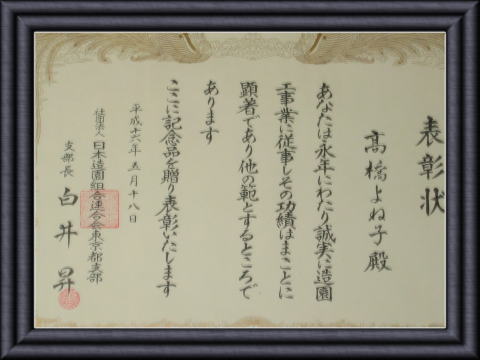 表彰状
髙橋よね子殿
あなたは永年にわたり誠実に造園
工事業に従事しその功績はまことに
顕著であり他の範とするところで
あります
ここに記念品を贈り表彰いたします
平成十六年五月十八日
社団法人日本造園組合連合会東京都支部
支部長 白井昇